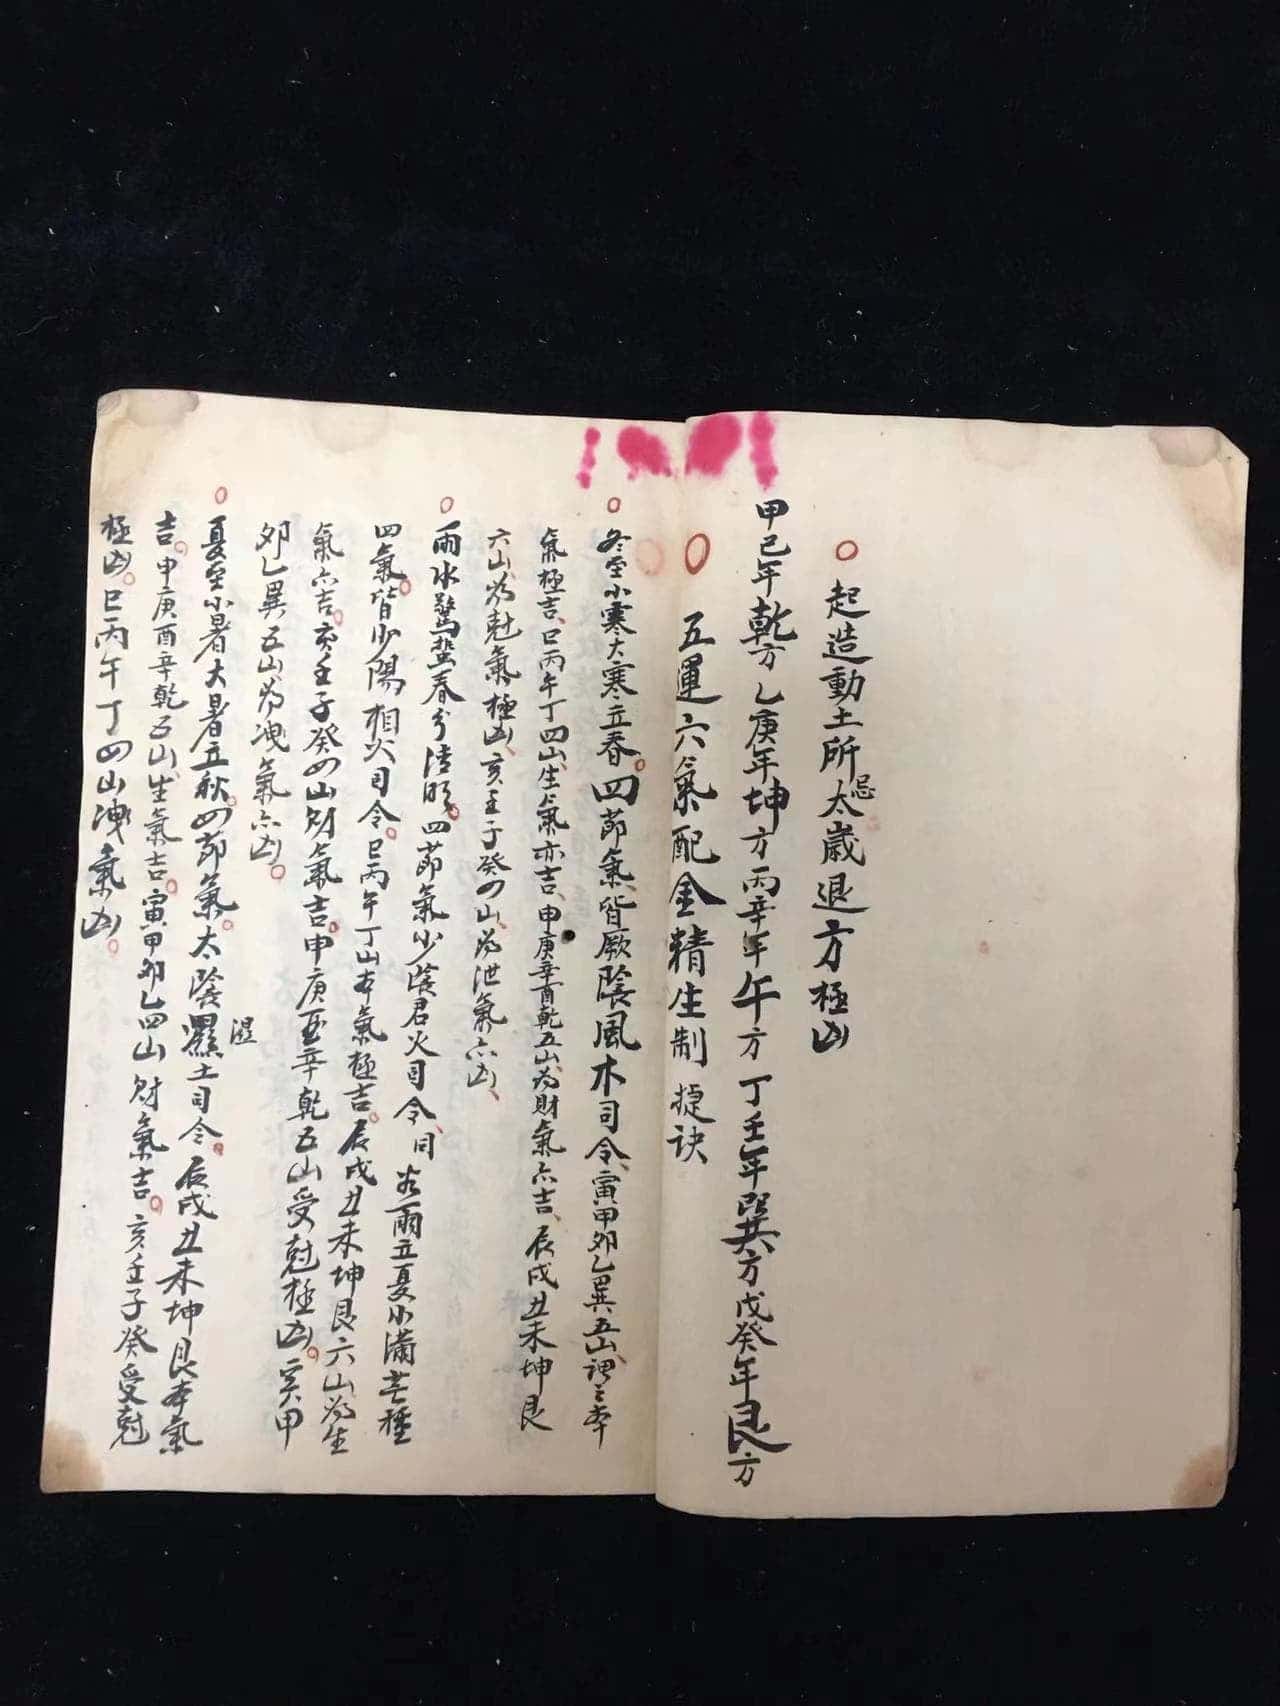 起造動土所忌太歲退方極凶
甲己年乾方乙庚年坤方丙辛年午方丁壬年巽方戊癸年艮方
五運六氣配金精生制捷訣
冬至小寒大寒立春四節氣皆厥陰風木司令寅甲卯乙巽五山謂之本
氣極吉巳丙午丁四山生氣亦吉申庚辛酉乾五山為財氣六吉辰戌丑未坤艮
六山為尅氣極凶亥壬子癸四山為泄氣六凶
雨水驚蟄春分清明四節氣少陰君火司令同谷雨立夏小滿芒種
四氣皆少陽相火司令巳丙午丁山本氣極吉辰戌丑未坤艮六山為生
氣六吉亥壬子癸四山財氣吉申庚酉辛乾五山受尅極凶寅甲
卯乙巽五山為洩氣六凶
夏至小暑大暑立秋四節氣太陰濕土司令辰戌丑未坤艮本氣
濕
吉申庚酉辛乾五山生氣吉寅甲卯乙四山財氣吉亥壬子癸受尅
極凶巳丙午丁四山洩氣凶